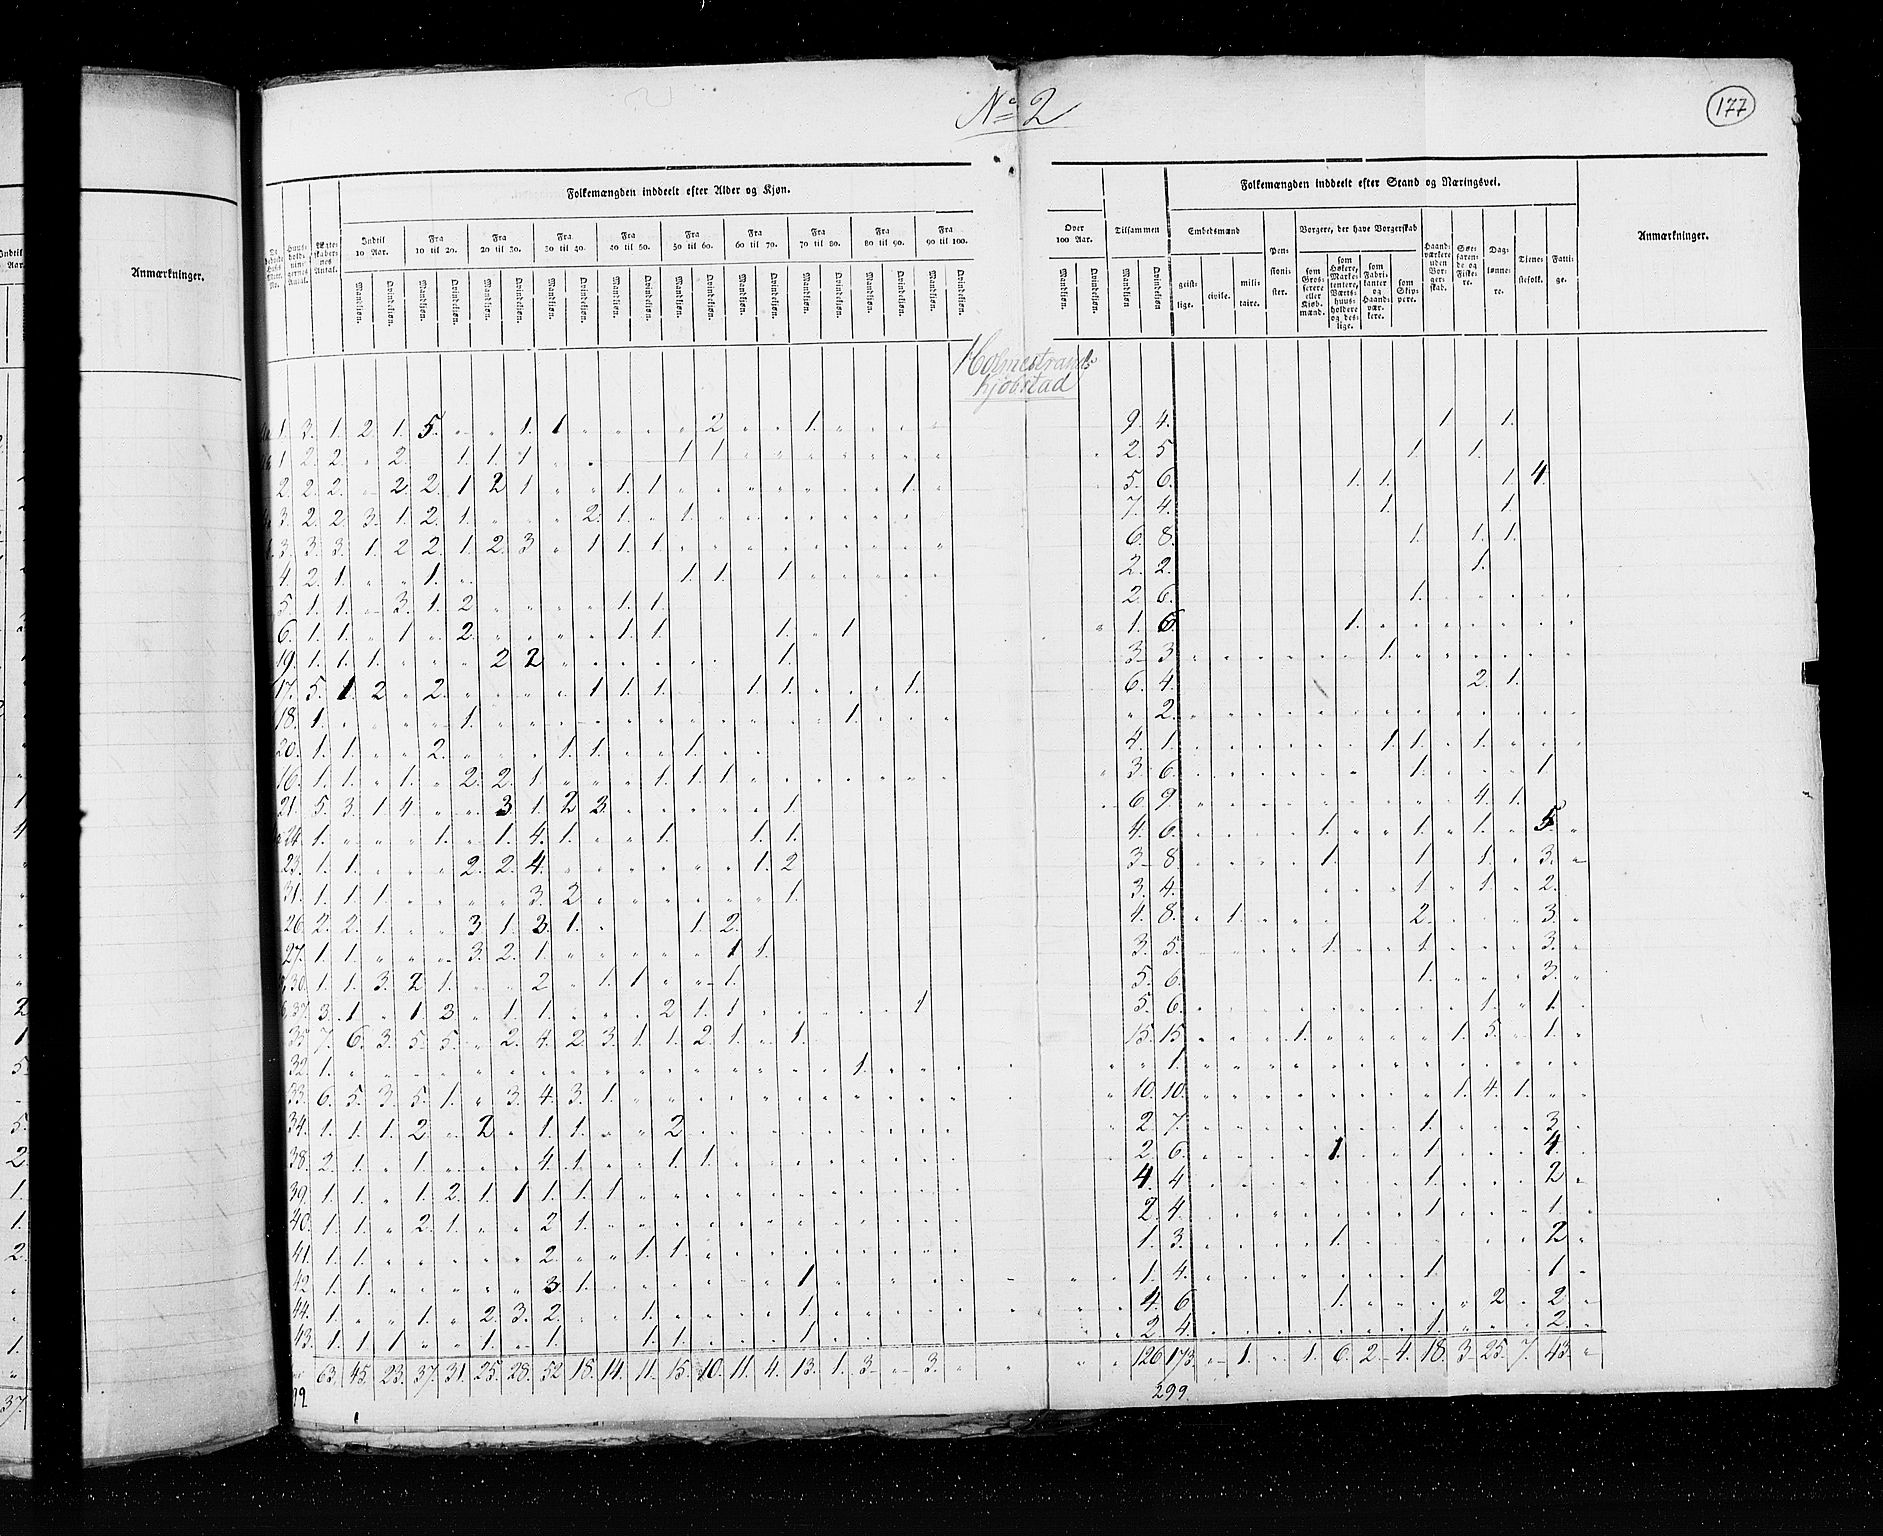 No 2
177
Folkemængden inddeelt efter Alder og Kjøn.
Folkemængden inddeelt efter Stand og Næringsvei.
Anmærkninger.
Anmærkninger.
Indtil 10 Aar.
Fra 10 til 20.
Fra 20 til 30.
Fra 30 til 40.
Fra 40 til 50.
Fra 50 til 60.
Fra 60 til 70.
Fra 70 til 80.
Fra 80 til 90.
Fra 90 til 100.
Over 100 Aar.
Tilsammen
Embedsmænd
Pensionister.
Borgere, der have Borgerskab
Haandværkere uden Borgerskab.
Søefarende og Fiskere.
Daglønnere.
Tienestefolk.
Fattige.
Mandkjøn. Qvindekjøn.
geistlige. civile. militaire.
som Grosserere eller Kjøbmænd.
som Høkere, Marketentere, Værtshuusholdere og deslige.
som Fabrikanter og Haandværkere.
som Skippere.
Holmestrands
Kjøbstad
1. 3. 1. 2. 1. 5. 1. 1 2 1. 9 4. 1. 1.
1 2. 2. 2. 1. 1. 1 1 1 2. 5 1. 1.
2. 2. 2. 2. 2. 1 2 1 1. 1 1. 5. 6. 1. 1. 1. 4.
3. 2. 2. 3. 1. 2. 1. 2. 1. 1. 7. 4. 1. 1.
3. 3. 3. 1. 2 2. 1. 2. 3 1 1. 1. 6. 8. 1. 1. 1.
4. 2. 1. 1. 1. 1. 1 2. 2. 1.
5. 1. 1. 3. 1. 2 1. 1. 2. 6. 1.
6. 1. 1. 1 2. 1. 1. 1. 1 1. 6. 1.
19. 1. 1. 1. 2 2 1. 3 3 1.
17. 5. 1. 2 2. 1 1. 1. 1 1. 1. 6. 4. 2. 1.
18. 1. 1. 1. 2.
20. 1. 1. 2. 1. 1. 1. 4. 1. 1. 1. 1.
16. 1. 1. 1. 2. 2. 1 1. 1. 1 3 6. 1. 1.
21. 5. 3. 1 4 3 1. 2 3. 1. 6. 9 4. 1.
24. 1. 1. 1. 4. 1. 1. 1. 1. 4. 6. 1. 1. 1. 5.
23. 1. 1. 2. 2. 4. 1. 2 3 8 1. 1 1. 3.
31. 1. 1. 1 3. 2 1. 3. 4. 1. 1. 2.
26. 2. 2. 1. 3 1. 3. 1. 1. 2. 4. 8. 1. 2. 3.
27. 1. 1. 3. 2. 1. 1 1. 3. 5. 1. 1. 3.
30. 1. 1. 3. 2 1. 2 1. 1 1. 5. 6. 1. 3.
37. 3. 1 1. 3 1. 1. 2 1. 1 1 5. 6. 1. 1.
35. 7. 6. 3. 5. 5. 2. 4. 2. 3. 1. 1. 2. 1. 1. 15. 15. 1. 1. 5. 1.
32. 1. 1. 1.
33. 6. 5. 3. 5. 1. 3. 4. 3. 1. 10. 10. 1. 4. 1.
34. 1. 1. 1. 2 2 1. 1. 2 2 7. 1. 3.
38. 2. 1. 1. 4. 1. 1. 1. 2 6. 1. 1 4.
39. 1. 1. 1. 2. 1. 1 1. 1. 1 4. 4 1. 2
40. 1. 1. 2. 1. 2 1. 2. 4. 1. 1.
41. 1. 1. 2. 1. 1. 1. 3. 1. 2
42 1. 1. 3. 1. 1 1. 4. 1. 1
44. 1. 1. 2. 3. 2. 1. 1. 4. 6 1. 2 2
43. 1. 1. 1 1. 1. 1. 1. 1. 2 4. 1. 2.
63. 45. 23. 37. 31. 25. 28. 52 18. 14. 11. 15. 10. 11. 4. 13. 1. 3 3. 126. 173. 1. 1. 6. 2. 4. 18. 3 25. 7. 43.
299.